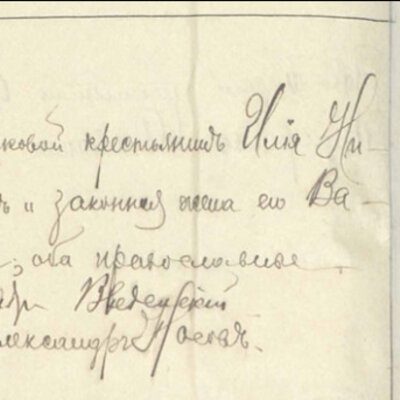 ковой крестьянинъ Илія Ни-
ъ и законная жена его Ва-
; оба православные
Введенскій
лександръ Носовъ.